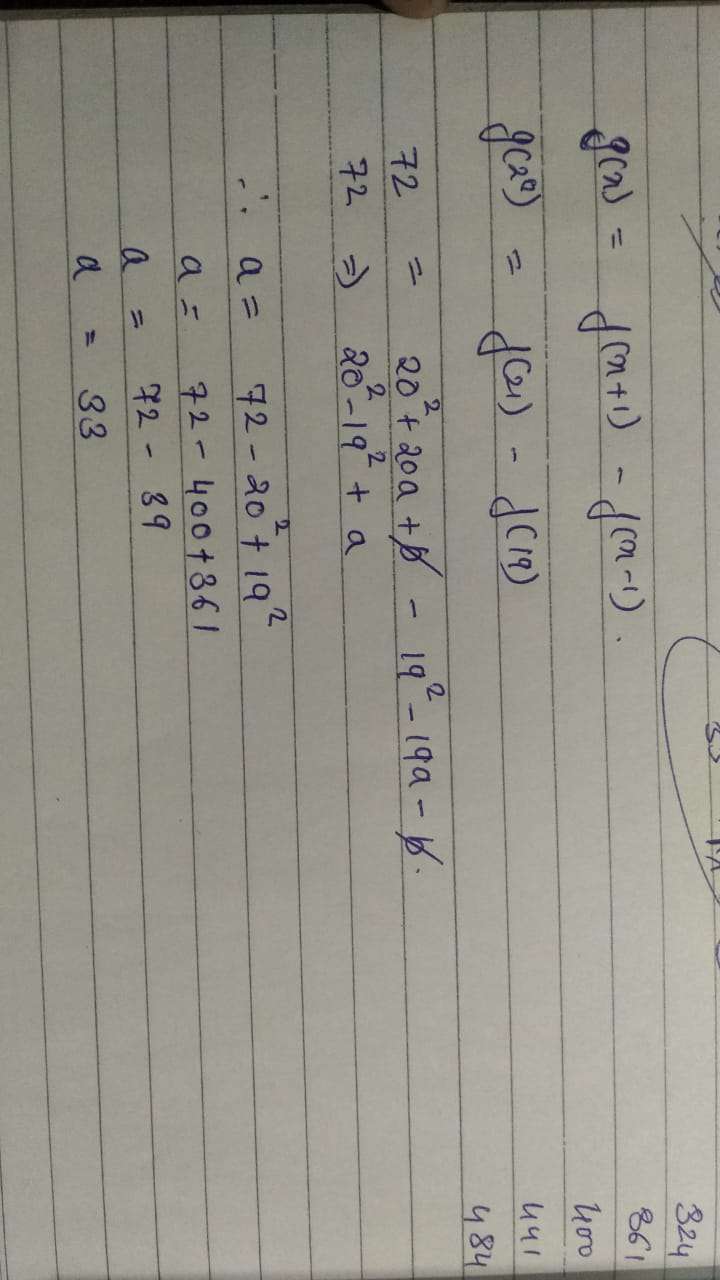 g(x) = f(x+1) - f(x-1).
g(20) = f(21) - f(19)
72 = 20² + 20a + b - 19² - 19a - b.
72 ⇒ 20² - 19² + a
∴ a = 72 - 20² + 19²
a = 72 - 400 + 361
a = 72 - 39
a = 33
324
361
400
441
484